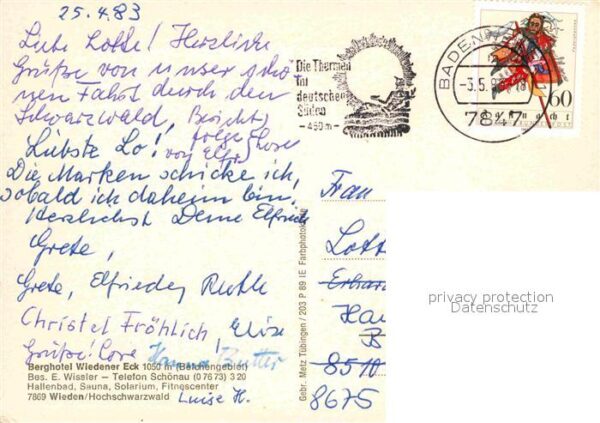 25.4.83
Liebe Lotte! Herzliche
Grüße von unser schö
nen Fahrt durch den
Schwarzwald, Bericht
folgt
von Elfr.
Liebste Lo!
Die Marken schicke ich,
sobald ich daheim bin.
Herzlichst Deine Elfriede
Grete,
Grete, Elfriede, Ruth
Christel Fröhlich, Elise
Grüße! Lore Hanna
Luise H.
Die Thermen
im
deutschen
Süden
-450m-
BADENW
-3.5.8 -18
7847
60
Frau
Lott
Erhar
Hau
B
8510
8675
privacy protection
Datenschutz
Berghotel Wiedener Eck 1050 m (Belchengebiet)
Bes. E. Wissler – Telefon Schönau (0 76 73) 3 20
Hallenbad, Sauna, Solarium, Fitnescenter
7869 Wieden/Hochschwarzwald
Gebr. Metz Tübingen / 203 P 89 IE Farbphoto